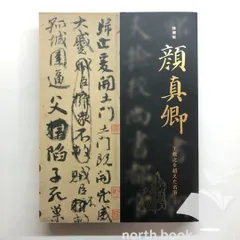 特別展
顔真卿
王羲之を超えた名筆
歸止爰開土門土門既開
大蹙賊臣不救
孤城圍逼父陷子死
north book